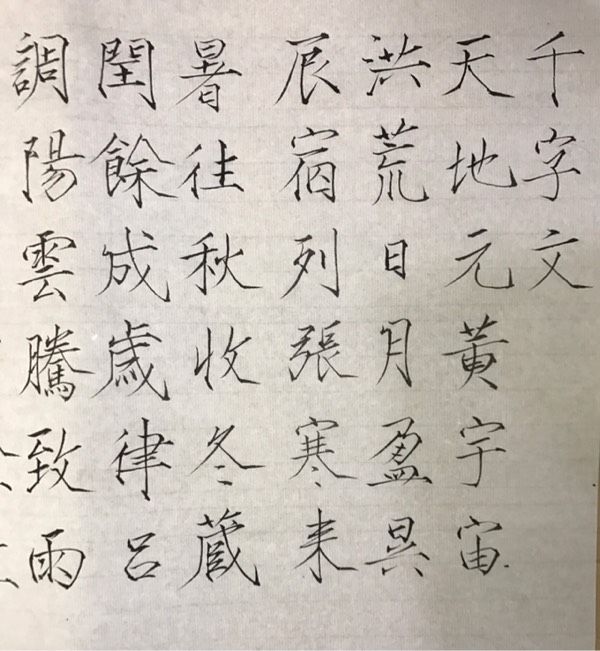 千字文
天地元黃宇宙
洪荒日月盈昃
辰宿列張寒来
暑往秋收冬蔵
閏餘成歲律呂
調陽雲騰致雨